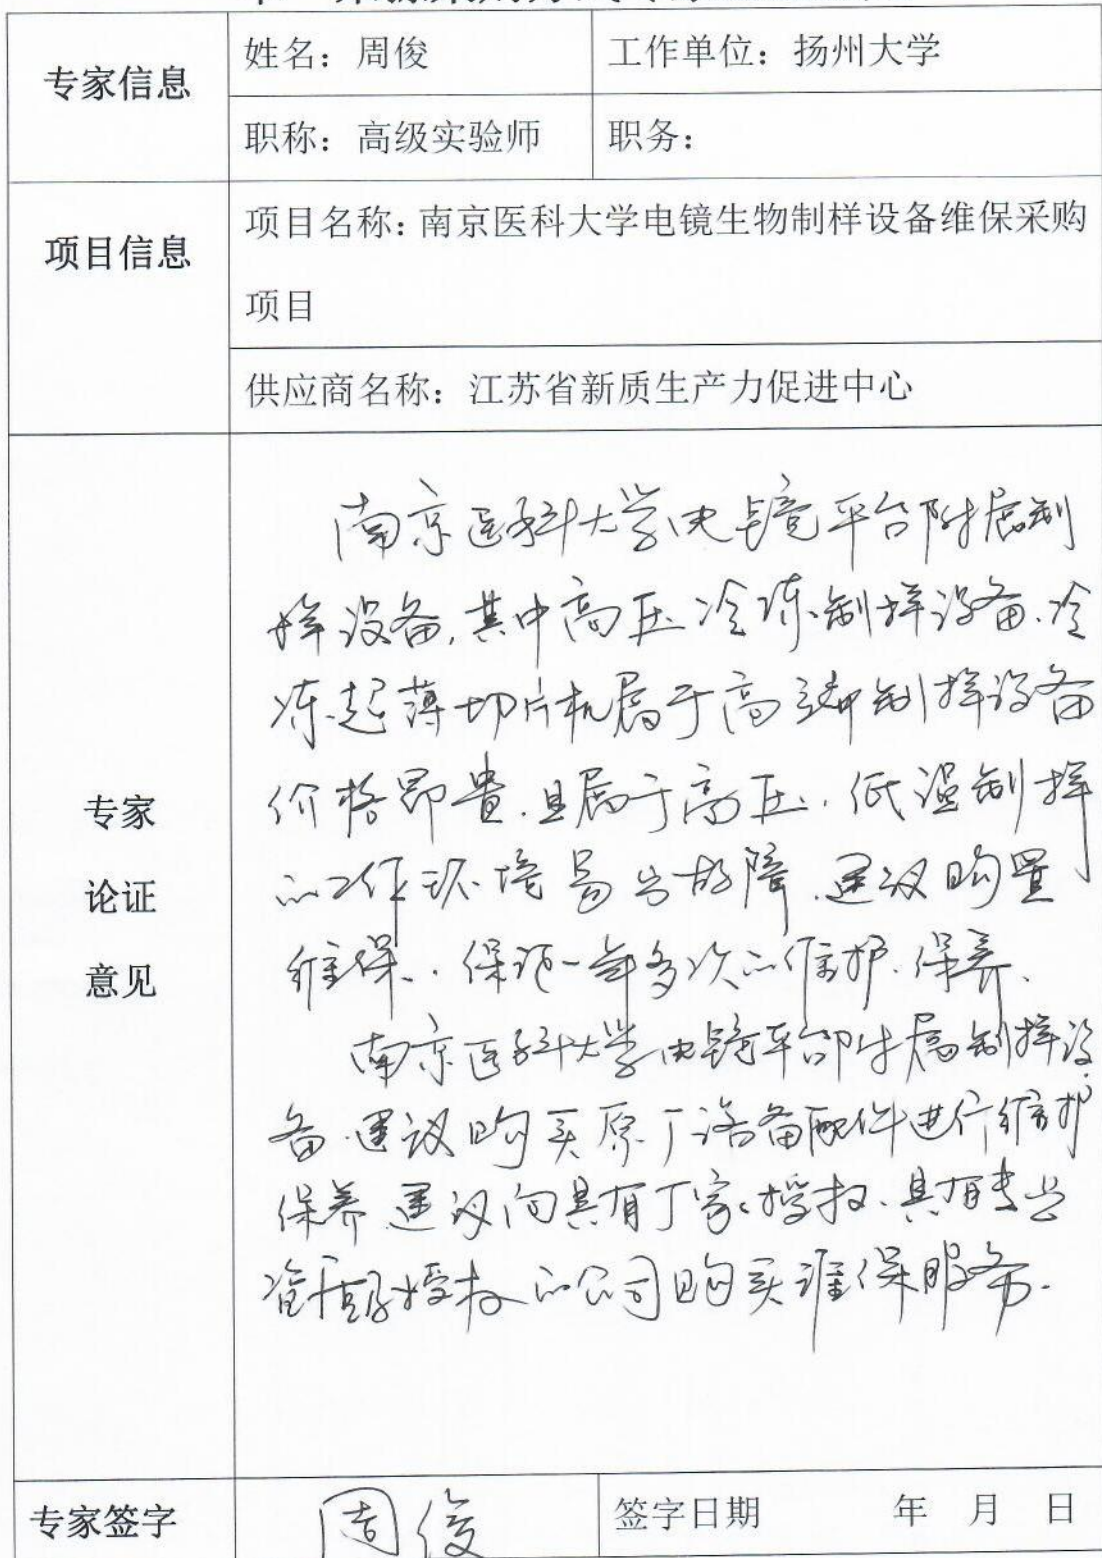 专家信息
姓名：周俊
工作单位：扬州大学
职称：高级实验师
职务：
项目信息
项目名称：南京医科大学电镜生物制样设备维保采购
项目
供应商名称：江苏省新质生产力促进中心
专家
论证
意见
南京医科大学电镜平台附属制
样设备，其中高压冷冻制样设备、冷
冻超薄切片机属于高端制样设备
价格昂贵，且属于高压、低温制样
的工作环境易出故障，建议购置
维保，保证一年多次的维护、保养、
南京医科大学电镜平台附属制样设
备，建议购买原厂设备配件进行维护
保养，建议向具有厂家授权、具有专业
授权的公司购买维保服务.
专家签字
周俊
签字日期 年 月 日